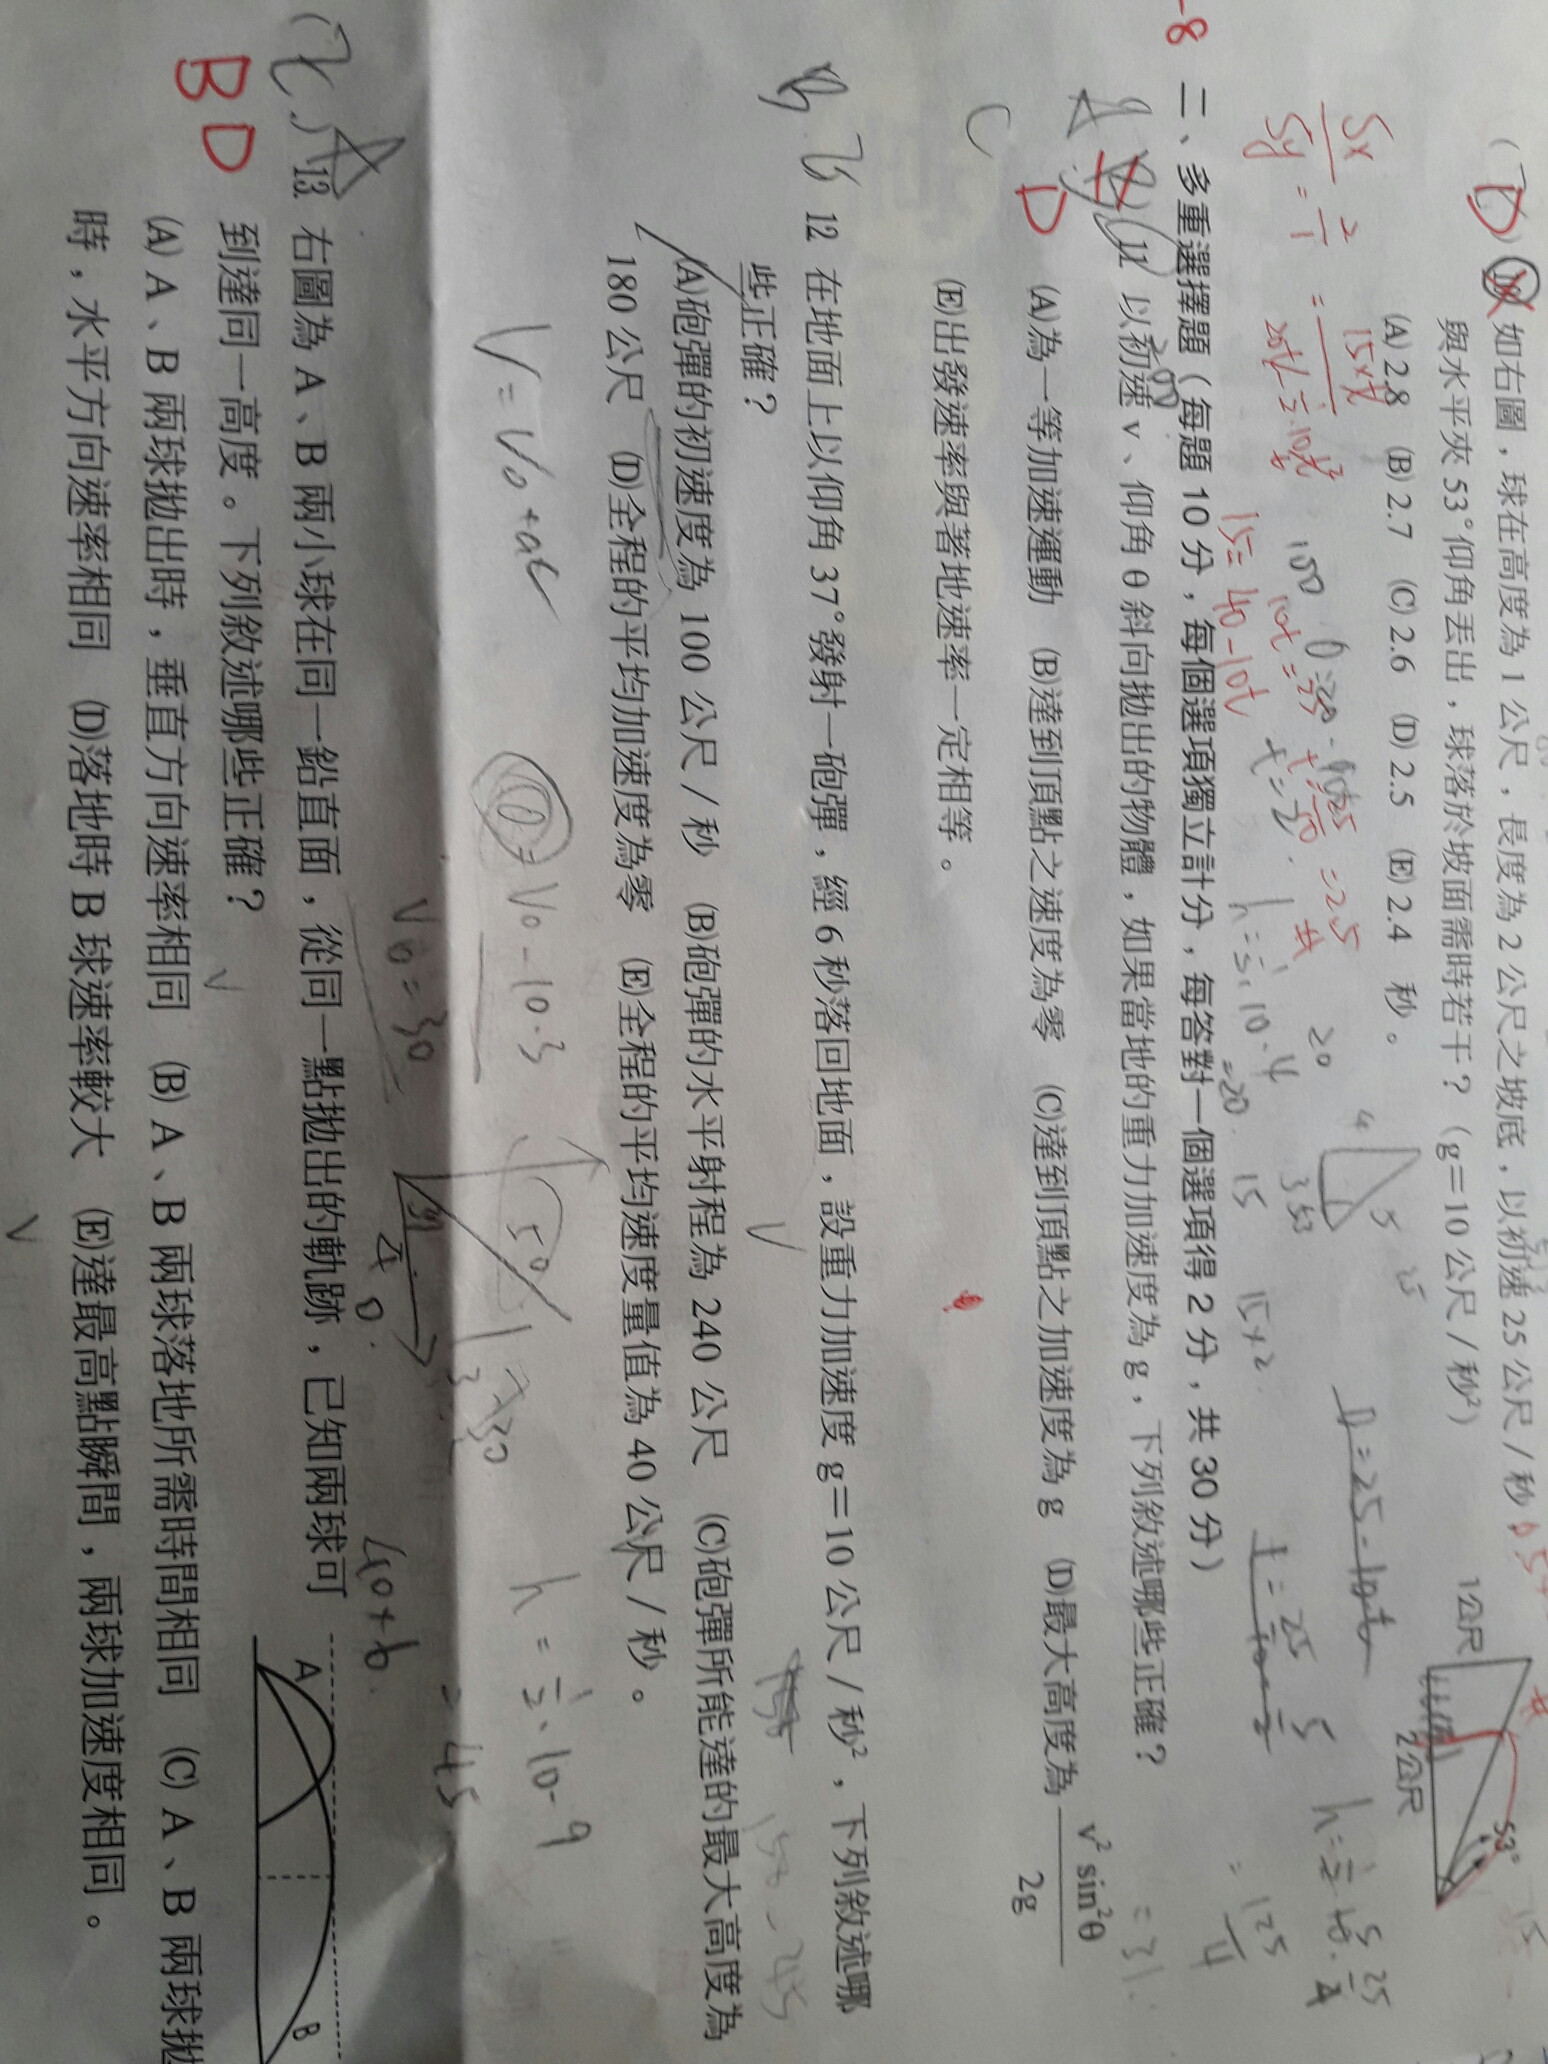 如右圖，球在高度為 1 公尺，長度為 2 公尺之坡底，以初速 25 公尺／秒
與水平夾 53°仰角丟出，球落於坡面需時若干？（g＝10 公尺／秒²）
(A) 2.8 (B) 2.7 (C) 2.6 (D) 2.5 (E) 2.4 秒。
1公尺
2公尺
53°
-8
二、多重選擇題（每題 10 分，每個選項獨立計分，每答對一個選項得 2 分，共 30 分）
D
11 以初速 v、仰角 θ 斜向拋出的物體，如果當地的重力加速度為 g，下列敘述哪些正確？
(A)為一等加速運動 (B)達到頂點之速度為零 (C)達到頂點之加速度為 g (D)最大高度為 v² sin²θ / 2g
(E)出發速率與著地速率一定相等。
12 在地面上以仰角 37°發射一砲彈，經 6 秒落回地面，設重力加速度 g＝10 公尺／秒²，下列敘述哪
些正確？
(A)砲彈的初速度為 100 公尺／秒 (B)砲彈的水平射程為 240 公尺 (C)砲彈所能達的最大高度為
180 公尺 (D)全程的平均加速度為零 (E)全程的平均速度量值為 40 公尺／秒。
V = V₀ + at
V₀ - 10·3
V₀ = 30
h = ½·10·9
= 45
13 右圖為 A、B 兩小球在同一鉛直面，從同一點拋出的軌跡，已知兩球可
到達同一高度。下列敘述哪些正確？
(A) A、B 兩球拋出時，垂直方向速率相同 (B) A、B 兩球落地所需時間相同 (C) A、B 兩球拋
時，水平方向速率相同 (D)落地時 B 球速率較大 (E)達最高點瞬間，兩球加速度相同。
B D
A
B